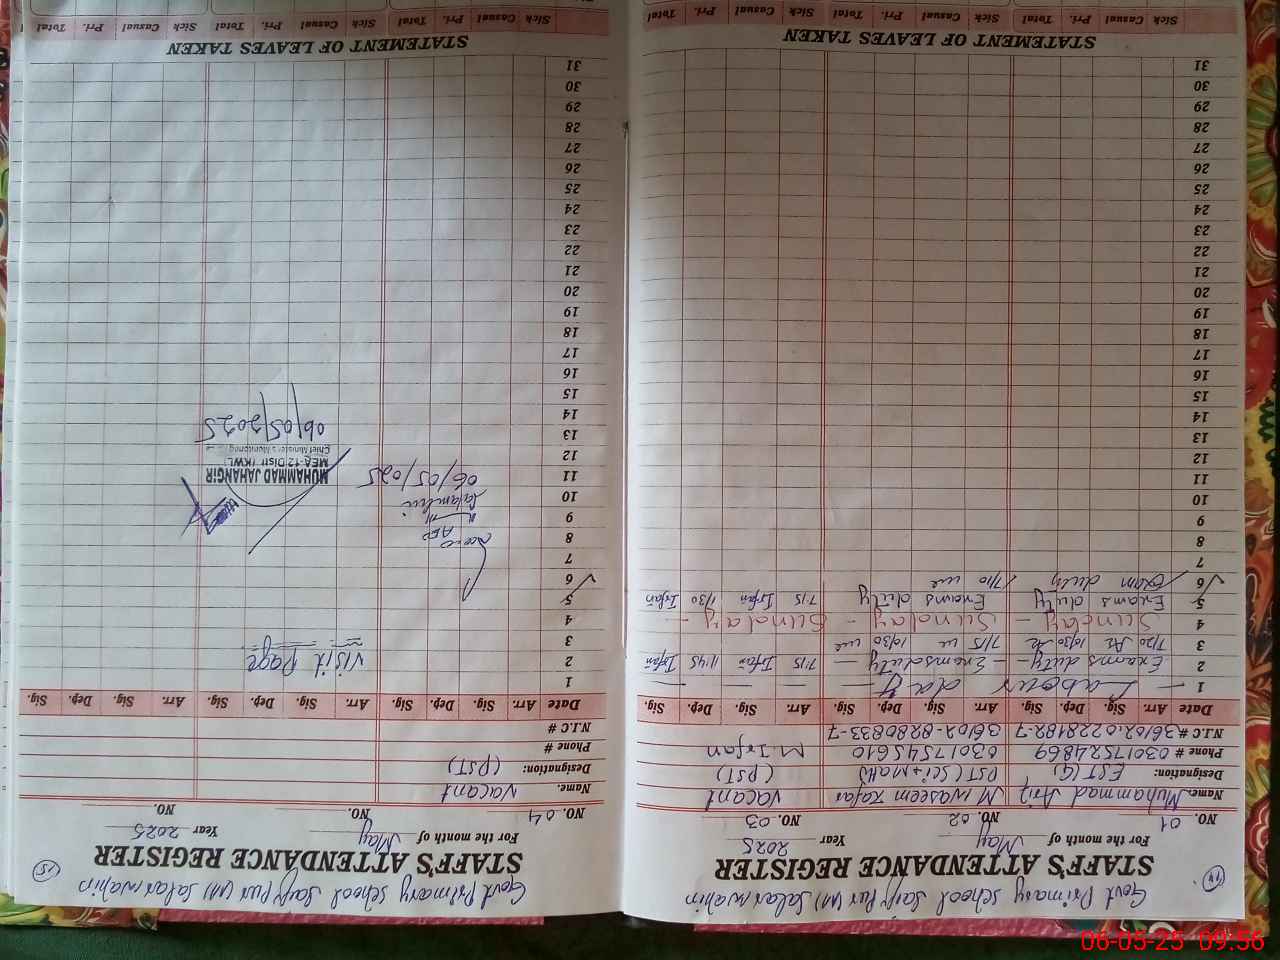 Govt Primary School Saif Pur (W) Salarwahin
14
STAFF'S ATTENDANCE REGISTER
For the month of May Year 2025
NO. 01 NO. 02 NO. 03
Name: Muhammad M Waseem Zafar Vacant
Designation: EST (G) PST (Sci+Math) (PST)
Phone # 03017524869 03017545610 M. Irfan
N.I.C # 36102.0228182-7 36102-8280833-7
Date Arr. Sig. Dep. Sig. Arr. Sig. Dep. Sig. Arr. Sig. Dep. Sig.
1 — Labour day — — — —
2 Exams duty — Exams duty — 7:15 Irfan 11:45 Irfan
3 7/20 10/30 7/15 10/30
4 Sunday — Sunday — Sunday —
5 Exams duty Exams duty 7:15 Irfan 1/30 Irfan
6 Exam duty 7/10
7
8
9
10
11
12
13
14
15
16
17
18
19
20
21
22
23
24
25
26
27
28
29
30
31
STATEMENT OF LEAVES TAKEN
Sick Casual Pri. Total Sick Casual Pri. Total Sick Casual Pri. Total
Govt Primary School Saif Pur (W) Salarwahin
15
STAFF'S ATTENDANCE REGISTER
For the month of May Year 2025
NO. 04 NO. NO.
Name: Vacant
Designation: (PST)
Phone #
N.I.C #
Date Arr. Sig. Dep. Sig. Arr. Sig. Dep. Sig. Arr. Sig. Dep. Sig.
1
2 Visit Page
3
4
5
6
7
8 AEO
9
10
11 06/05/025
12
13
14
15
16
17
18
19
20
21
22
23
24
25
26
27
28
29
30
31
MUHAMMAD JAHANGIR
MEA-12 Distt (KWL)
Chief Minister's Monitoring
06/05/2025
STATEMENT OF LEAVES TAKEN
Sick Casual Pri. Total Sick Casual Pri. Total Sick Casual Pri. Total
06-05-25 09:56